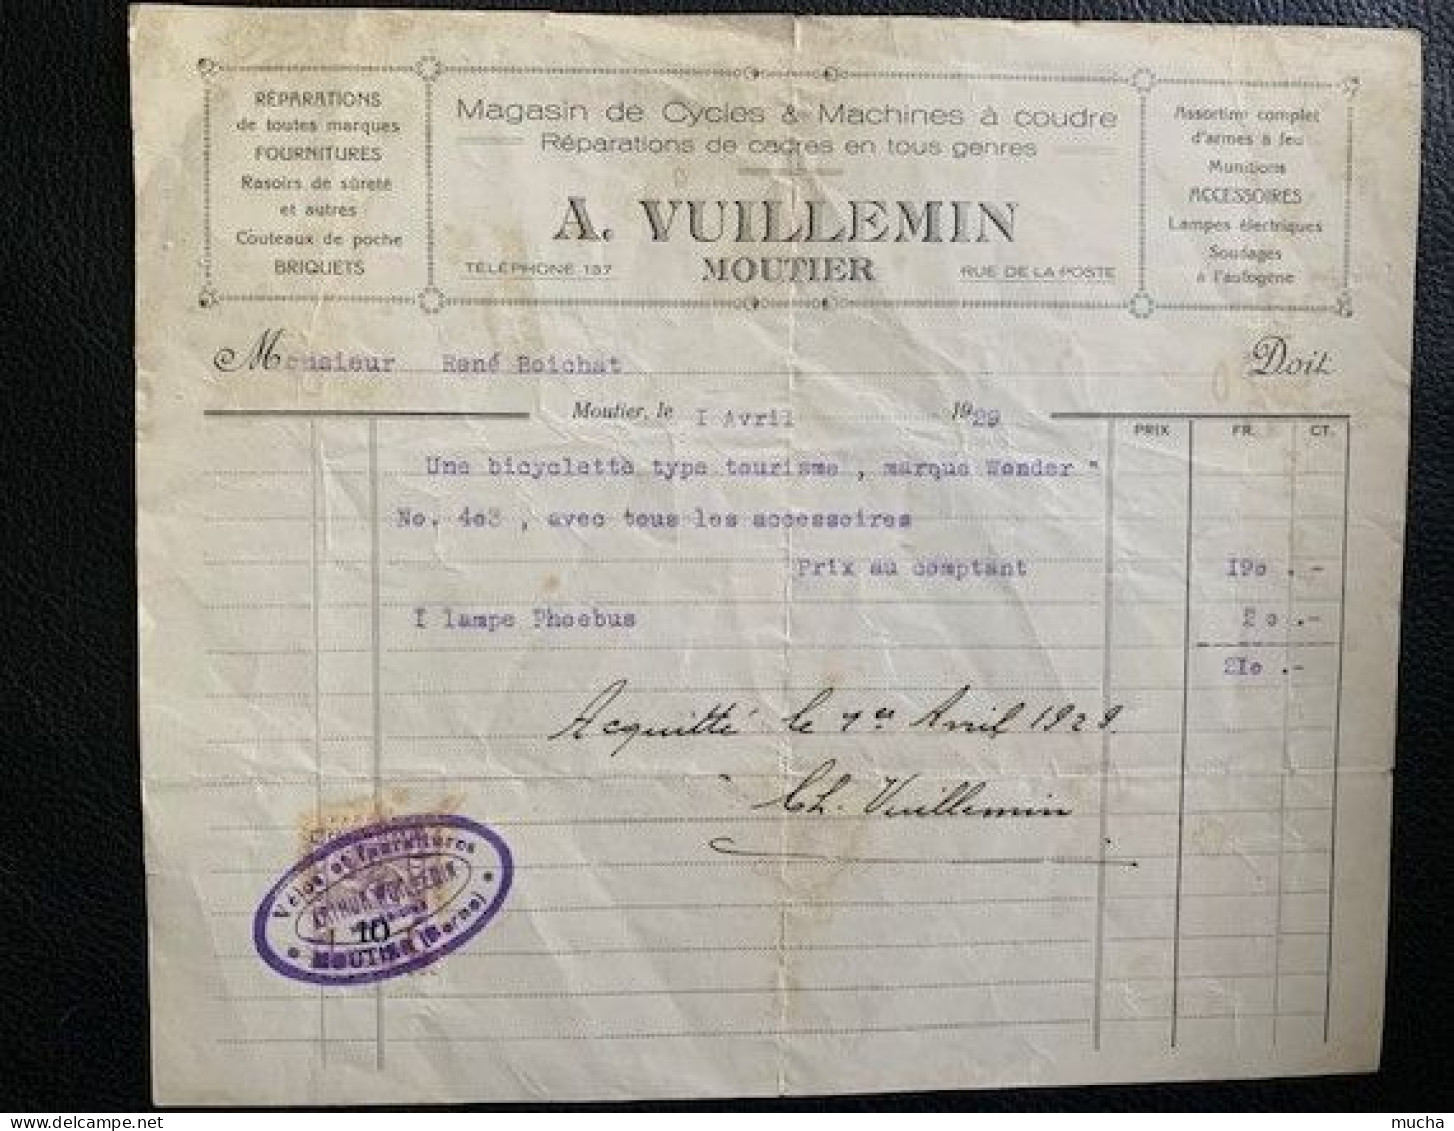 RÉPARATIONS
de toutes marques
FOURNITURES
Rasoirs de sûreté
et autres
Couteaux de poche
BRIQUETS
Magasin de Cycles & Machines à coudre
Réparations de cadres en tous genres
A. VUILLEMIN
TÉLÉPHONE 137 MOUTIER RUE DE LA POSTE
Assortimt complet
d'armes à feu
Munitions
ACCESSOIRES
Lampes électriques
Soudages
à l'autogène
Monsieur René Boichat Doit
Moutier, le I Avril 1929
PRIX FR. CT.
Une bicyclette type tourisme , marque Wonder "
No. 4o3 , avec tous les accessoires
Prix au comptant 19o .-
I lampe Phoebus 2o .-
21o .-
Acquitté le 1er Avril 1929.
Ch. Vuillemin
Vélos et fournitures
ARTHUR VUILLEMIN
10
MOUTIER (Berne)
delcampe.net
mucha